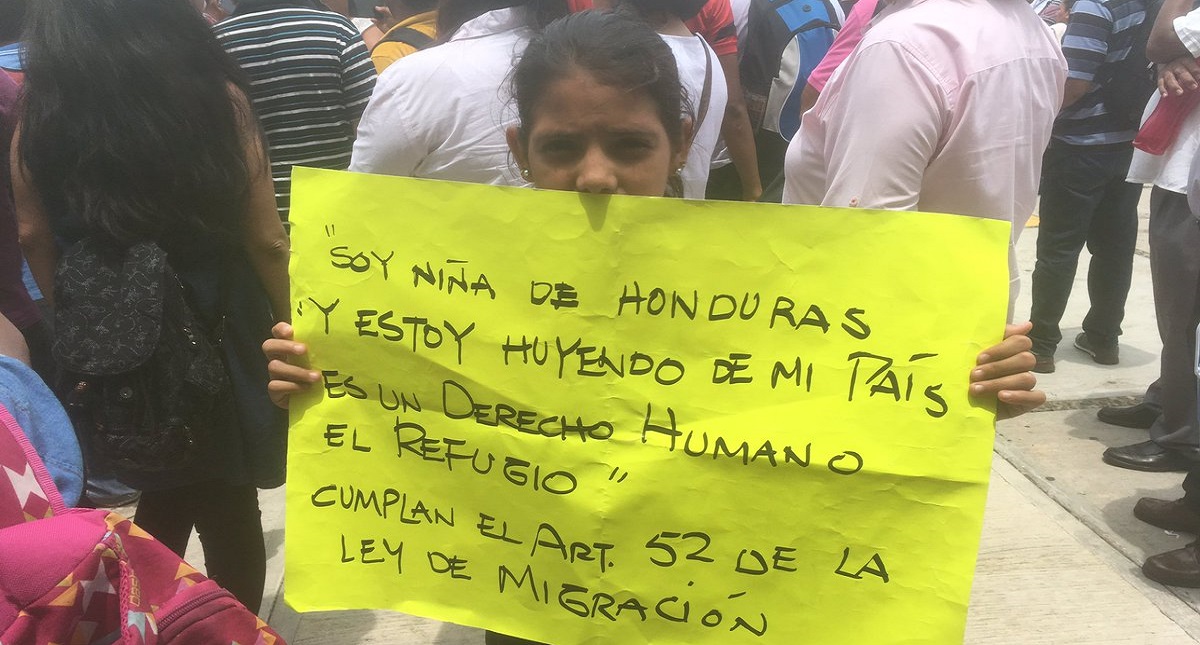 "SOY NIÑA DE HONDURAS
"Y ESTOY HUYENDO DE MI PAÍS
ES UN DERECHO HUMANO
EL REFUGIO"
CUMPLAN EL ART. 52 DE LA
LEY DE MIGRACIÓN